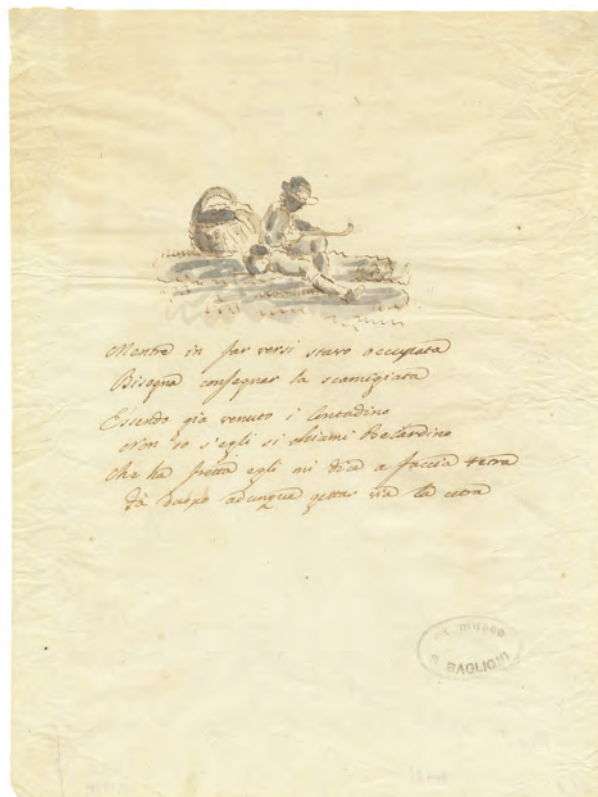 Mentre in far versi stavo occupata
Bisogna consegnar la scamigiata
Essendo gia venuto i Contadino
Non so s'egli si chiami Belardino
Che ha fretta egli mi dice a faccia tetra
Fà duopo adunque gettar via la cetra
museo
BAGLIONI